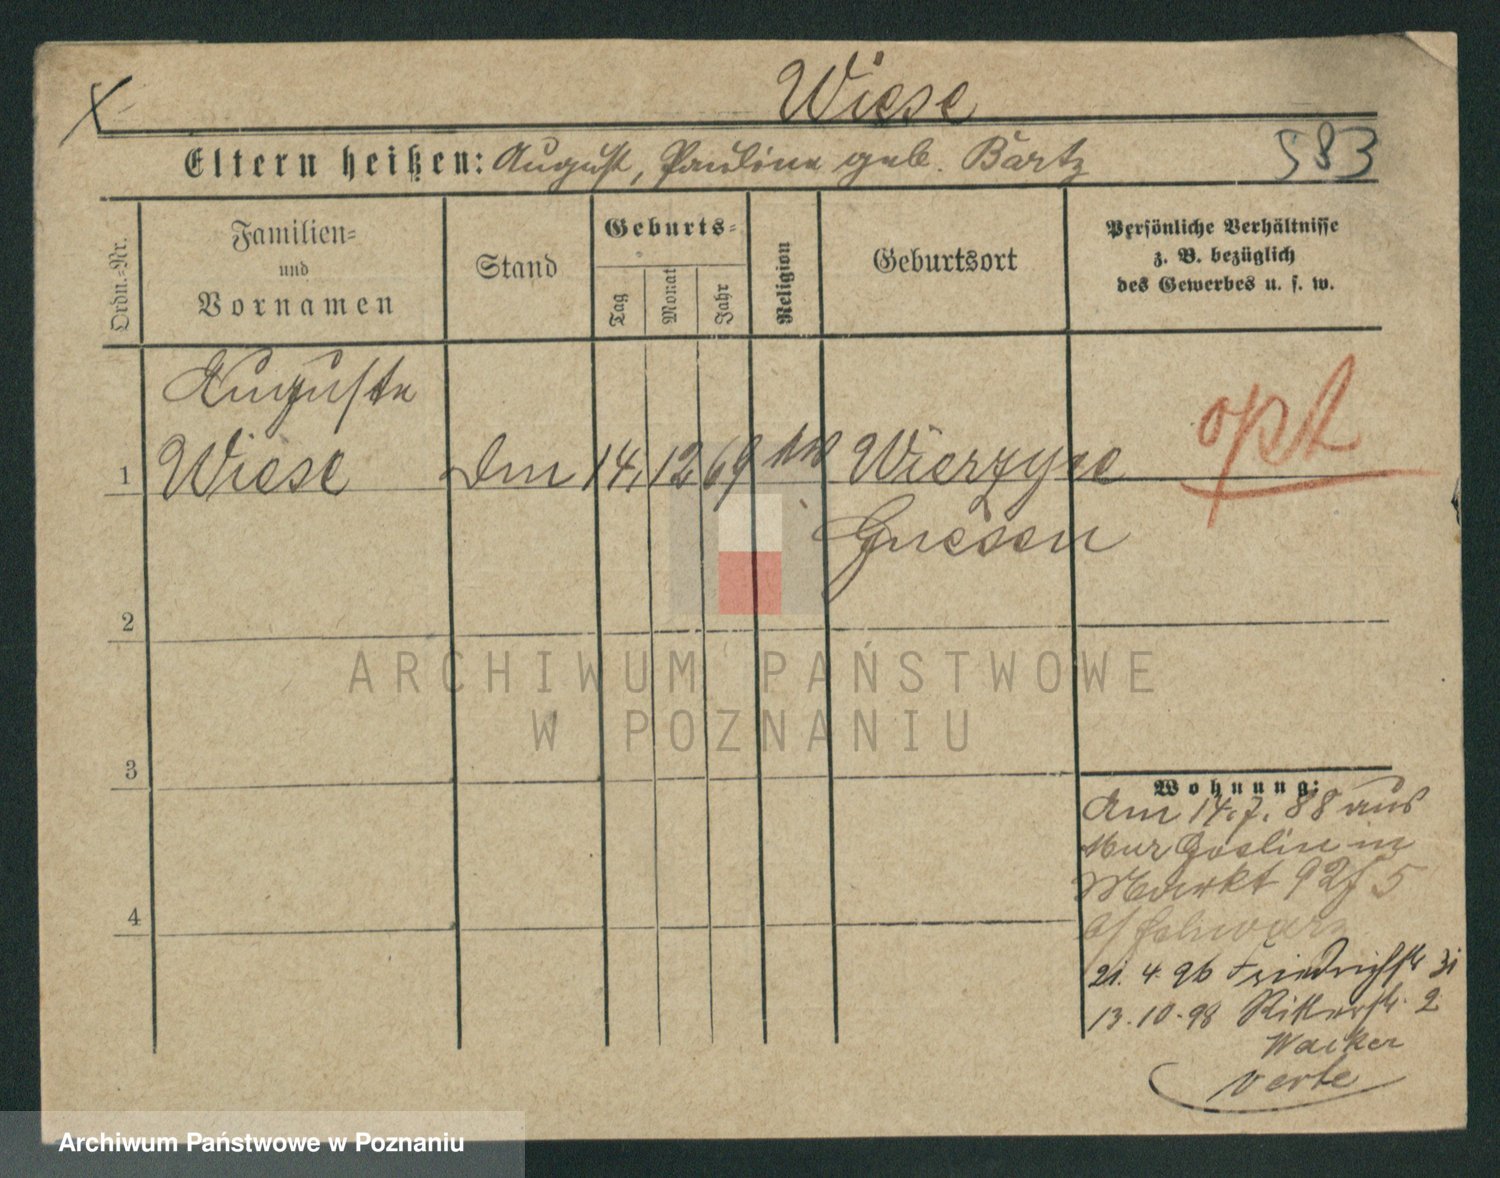 Wiese
Eltern heißen: August, Pauline geb. Bartz
583
Ordn.-Nr.
Familien-
und
Vornamen
Stand
Geburts-
Tag
Monat
Jahr
Religion
Geburtsort
Persönliche Verhältnisse
z. B. bezüglich
des Gewerbes u. s. w.
Auguste
1 Wiese 14. 12. 69
Gnesen
opt
2
ARCHIWUM PAŃSTWOWE
W POZNANIU
3
Wohnung:
Am 14. 7. 88 aus
Mur Goslin in
Markt 92
4
21. 4. 96 Friedrichstr 31
13. 10. 98 Ritterstr. 2
verte
Archiwum Państwowe w Poznaniu